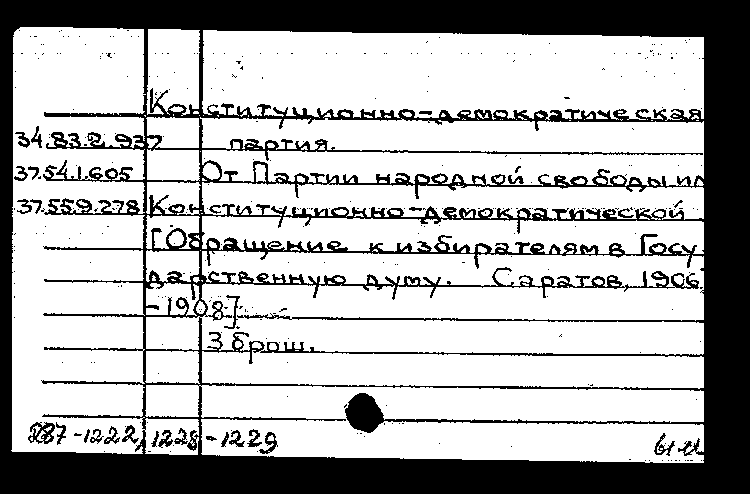 Конституционно-демократическая
34.83.2.937 партия.
37.54.1.605 От Партии народной свободы ил
37.55.9.278 Конституционно-демократической
[Обращение к избирателям в Госу-
дарственную думу. Саратов, 1906
-1908]
3 брош.
287-1222, 1228-1229